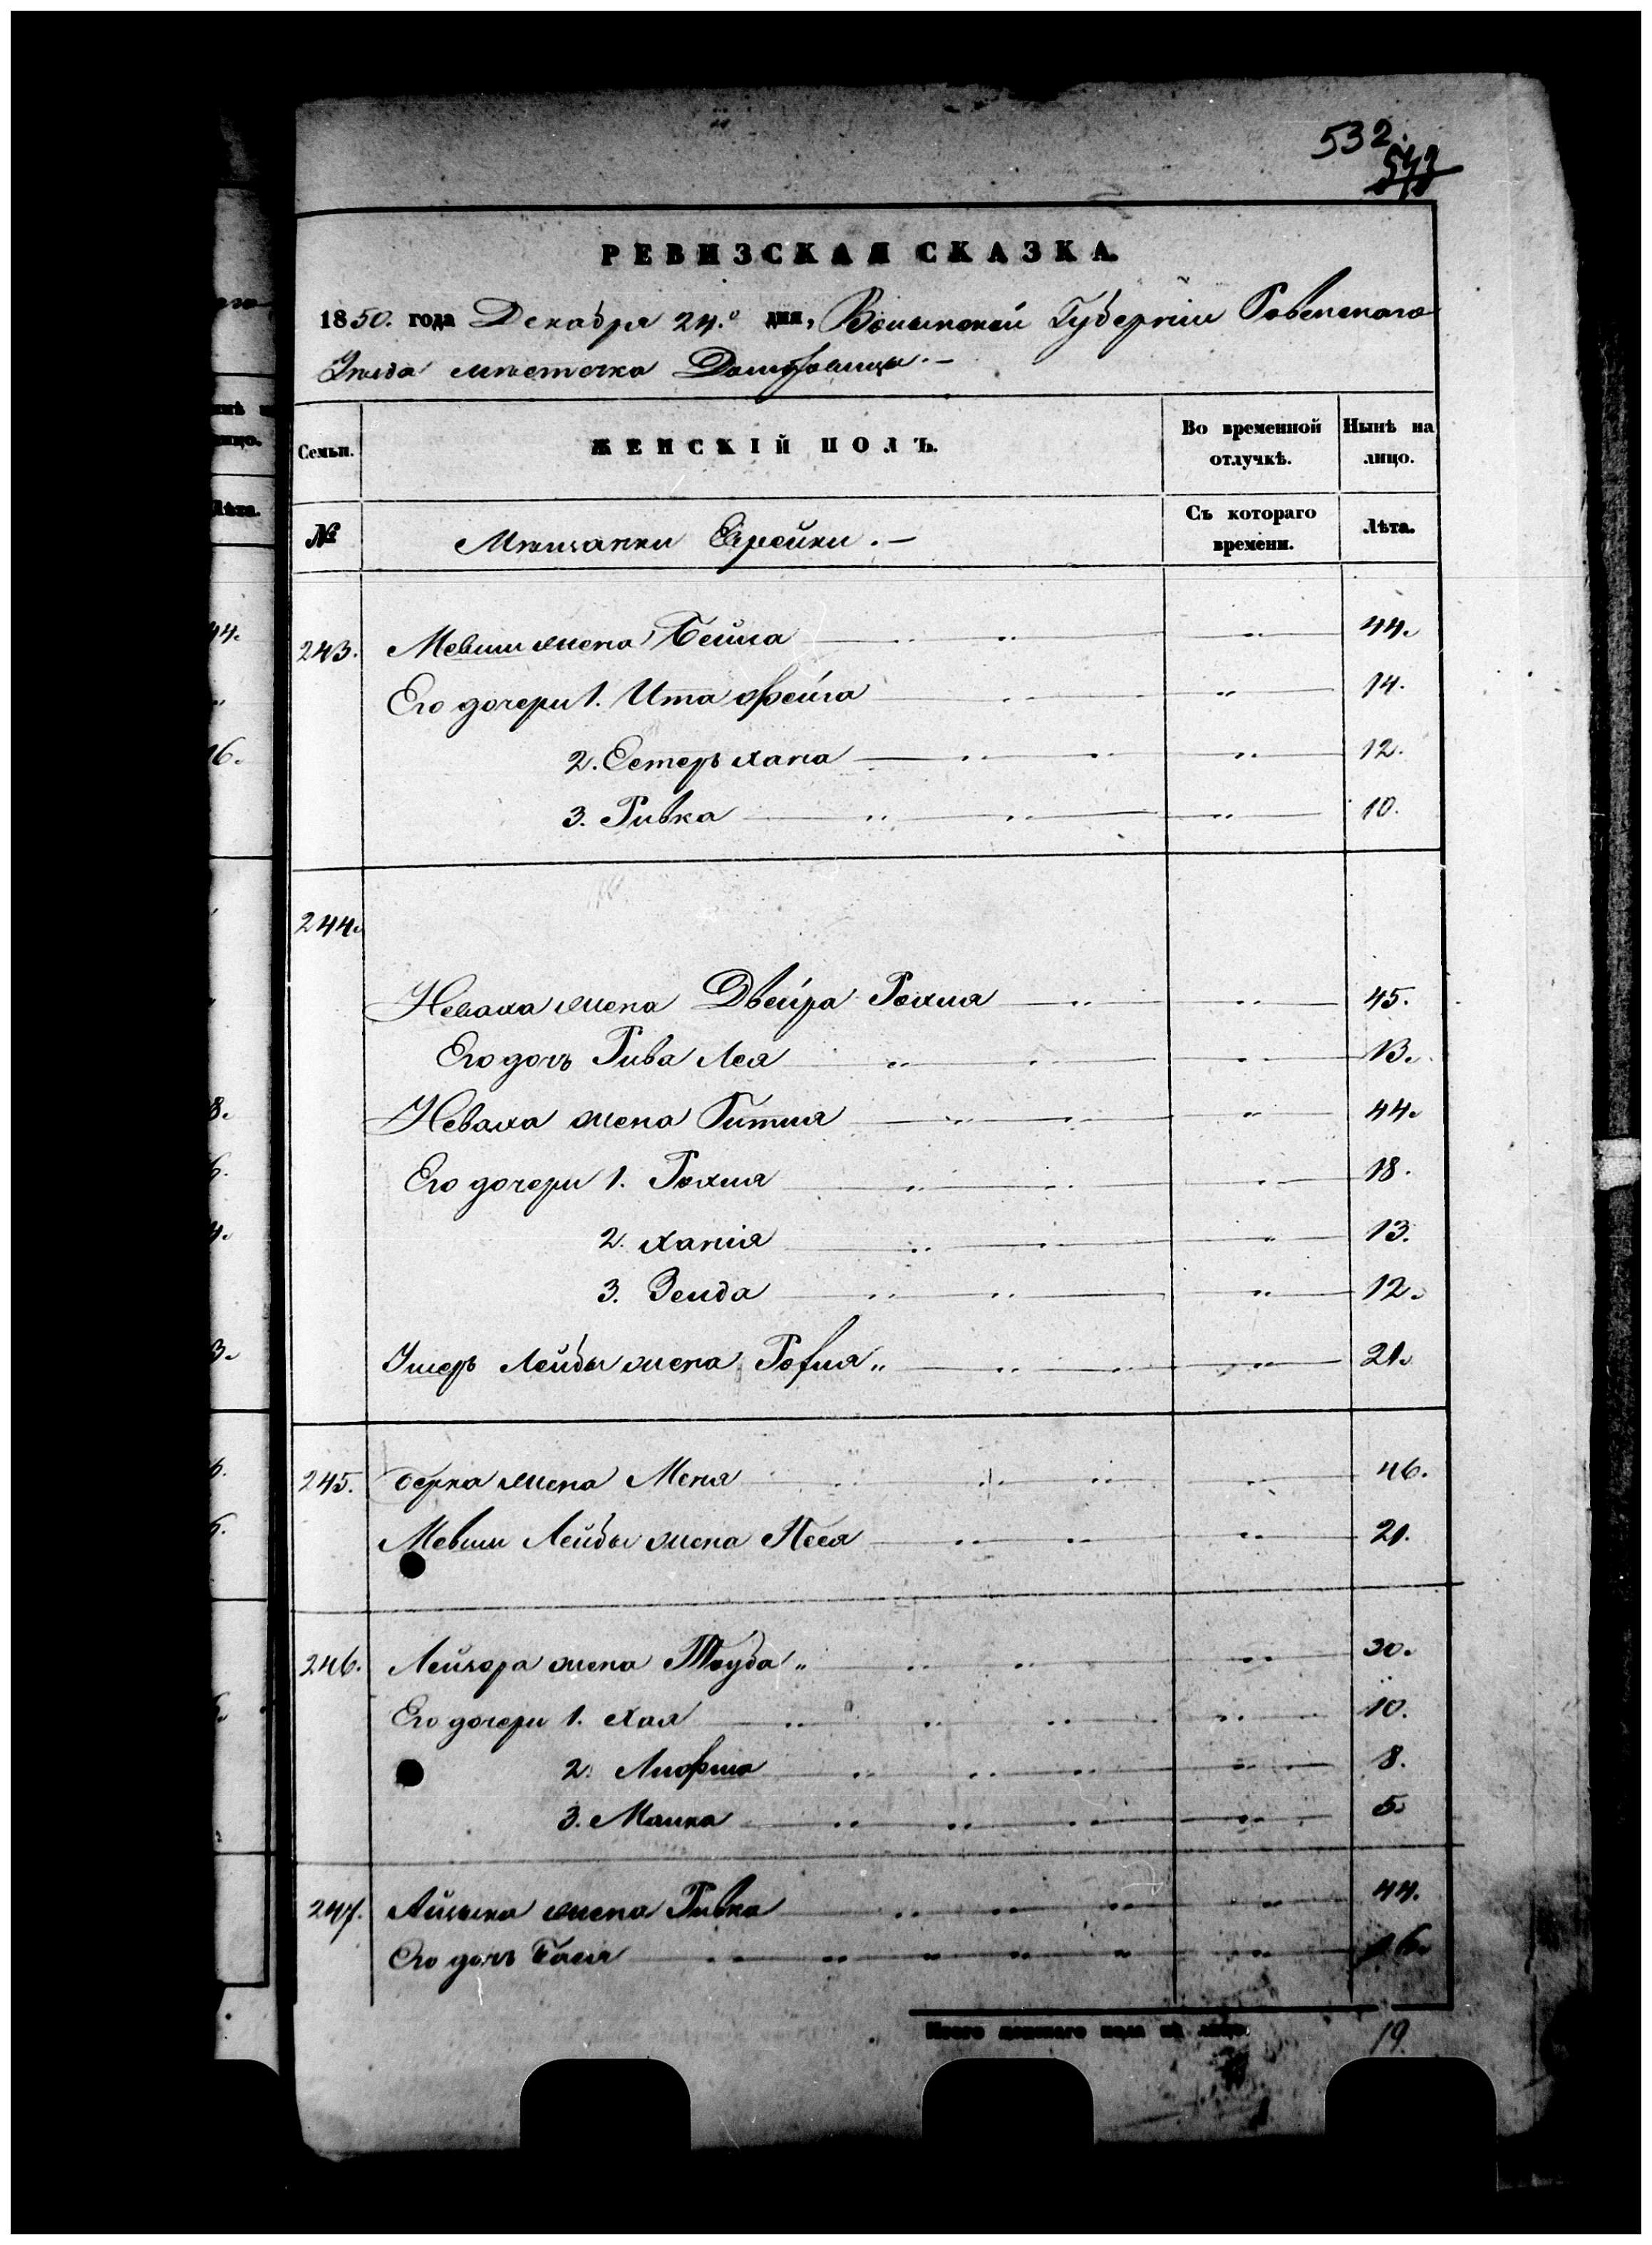 532.
543
РЕВИЗСКАЯ СКАЗКА.
1850. года Декабря 24.о дня, Волынской Губерніи Ровенского
Уѣзда мѣстечка Домбровица.—
Семьи.
ЖЕНСКІЙ ПОЛЪ.
Во временной отлучкѣ.
Нынѣ на лицо.
№
Мѣщанки Еврейки.—
Съ котораго времени.
Лѣта.
243. Мевши жена Бейла 44.
Его дочери 1. Ита Фейга 14.
2. Естеръ Хана 12.
3. Ривка 10.
244.
жена Двейра Рохля 45.
Его дочь Рива Лея 13.
Неваха жена Гитля 44.
Его дочери 1. Рохля 18.
2. Ханя 13.
3. Зелда 12.
Умеръ Лейбы жена 21.
245. Берка жена Меня 46.
Мевши Лейбы жена Песя 21.
246. Лейзора жена Тауба 30.
Его дочери 1. Хая 10.
2. 8.
3. Малка 5.
247. Айзыка жена Ривка 44.
Его дочь Бася 16.
Итого женскаго пола на лицо 19.